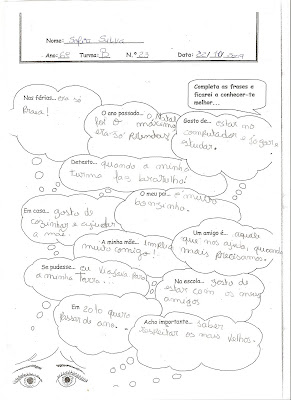 Nome: Sofia Silva
Ano: 6º Turma: B N.º 23 Data: 22/10/2009
Completa as frases e
ficarei a conhecer-te
melhor...
Nas férias... era só
Praia!
O ano passado... O Natal
foi o máximo
era só Prendas!
Gosto de... estar no
computador e jogar e
estudar.
Detesto... quando a minha
turma faz barulho!
O meu pai... é muito
bonzinho.
Em casa... gosto de
cozinhar e ajudar
a mãe.
A minha mãe... implica
muito comigo!
Um amigo é... aquele
que nos ajuda, quando
mais precisamos.
Se pudesse... eu viajava para
a minha terra...
Na escola... gosto de
estar com os meus
amigos
Em 2010 quero
passar de ano.
Acho importante... saber
respeitar os mais velhos.